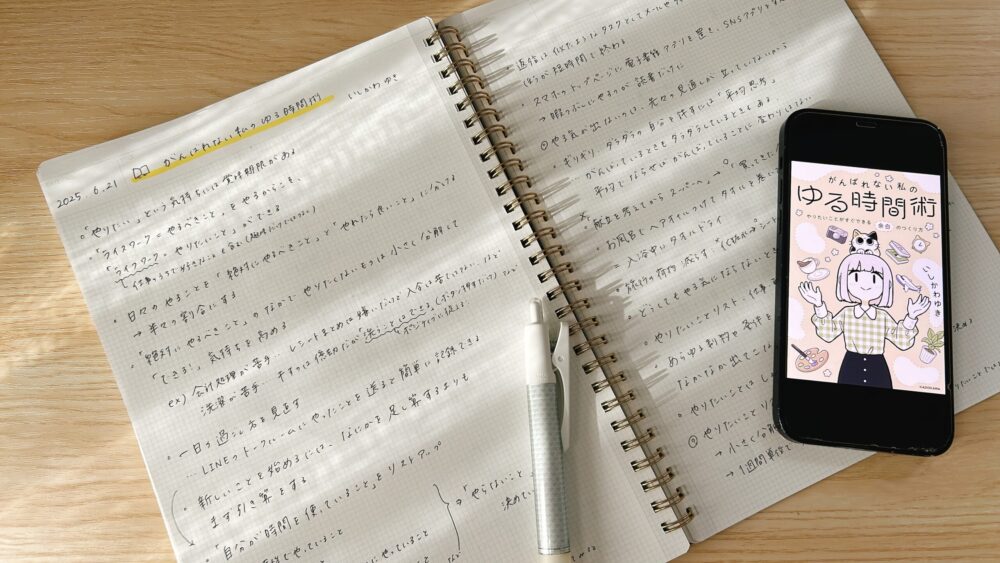 2025.6.21 がんばれない私のゆる時間術 いしかわゆき
・「やりたい」という気持ちには賞味期限がある
・「ライスワーク=やるべきこと」をやるからこそ、
「ライフワーク=やりたいこと」ができる
・日々のやることを「絶対にやるべきこと」と「やれたら良いこと」に分ける
→半々の割合にする
・「絶対にやるべきこと」のなかで やりたくないものは 小さく分解して
「できる!」気持ちを高める
ex) 会計処理が苦手:レシートまとめは嫌だけど 入金は苦ではない など
洗濯が苦手:干すのは億劫だが 洗うことはできる(ボタン押すだけ) など
・一日の過ごし方を見直す
…LINEのトークルームに やったことを送ると簡単に記録できる
・新しいことを始めるには、なにかを足し算するよりも
まず引き算をする
・「自分が時間を使っていること」をリストアップ
でやっていること
「やらないこと」
決めて
・返信は似たようなタスクとしてメールや
ほうが短時間で終わる
・スマホのトップページに電子書籍アプリを置き、SNSアプリ
→暇つぶしにやるのが読書だけに
・やる気が出ないのは、先々の見通しが立っていないから
・ギリギリ、ダラダラの自分を許すには「平均思考」
がんばっているときもダラダラしているときもある
平均でならせばがんばっていることに変わりはない
・献立を考えてからスーパーへ→「買ってきた
・お風呂でヘアオイルつけてタオルを巻いて
→入浴中にタオルドライ
・旅行の荷物減らす
・どうしてもやる気にならないとき
・やりたいことリスト:仕事
・あらゆる制約や条件を
なかなか出てこな
・やりたいことはし
・やりたいことリ
→小さく分解
→1週間単位で
がんばれない私の
ゆる時間術
やりたいことがすぐできる 余白 のつくり方
いしかわゆき
KADOKAWA